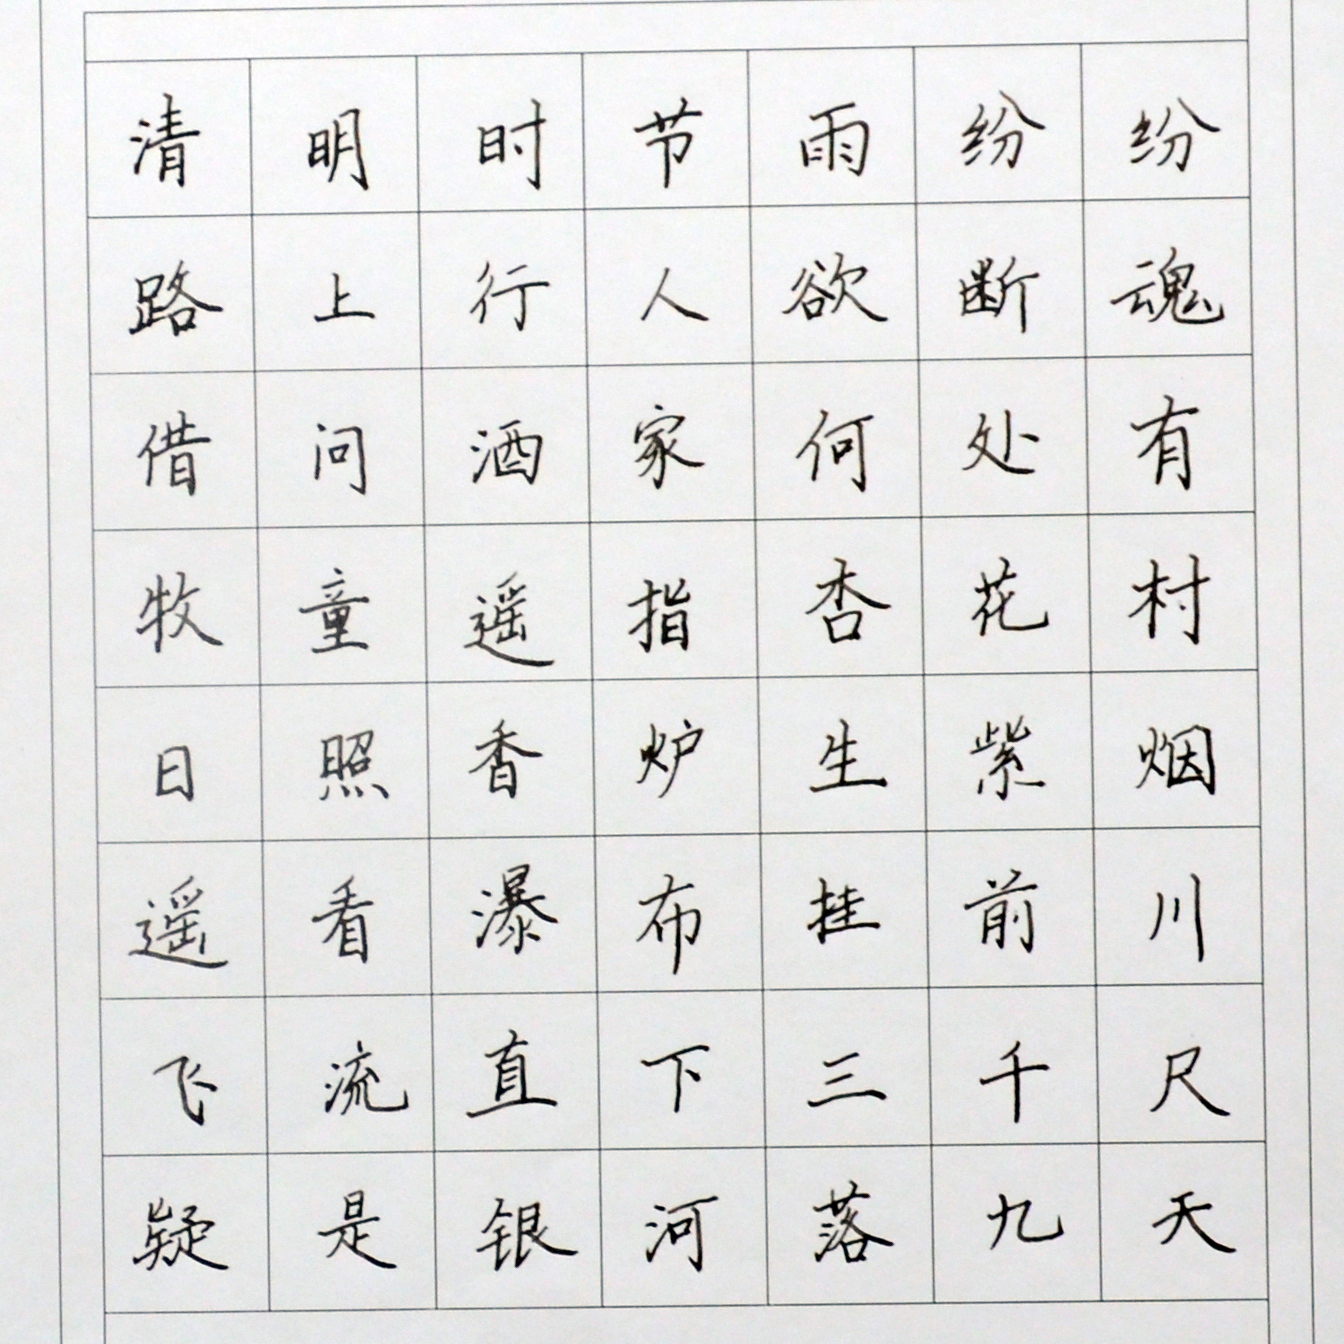 清明时节雨纷纷
路上行人欲断魂
借问酒家何处有
牧童遥指杏花村
日照香炉生紫烟
遥看瀑布挂前川
飞流直下三千尺
疑是银河落九天